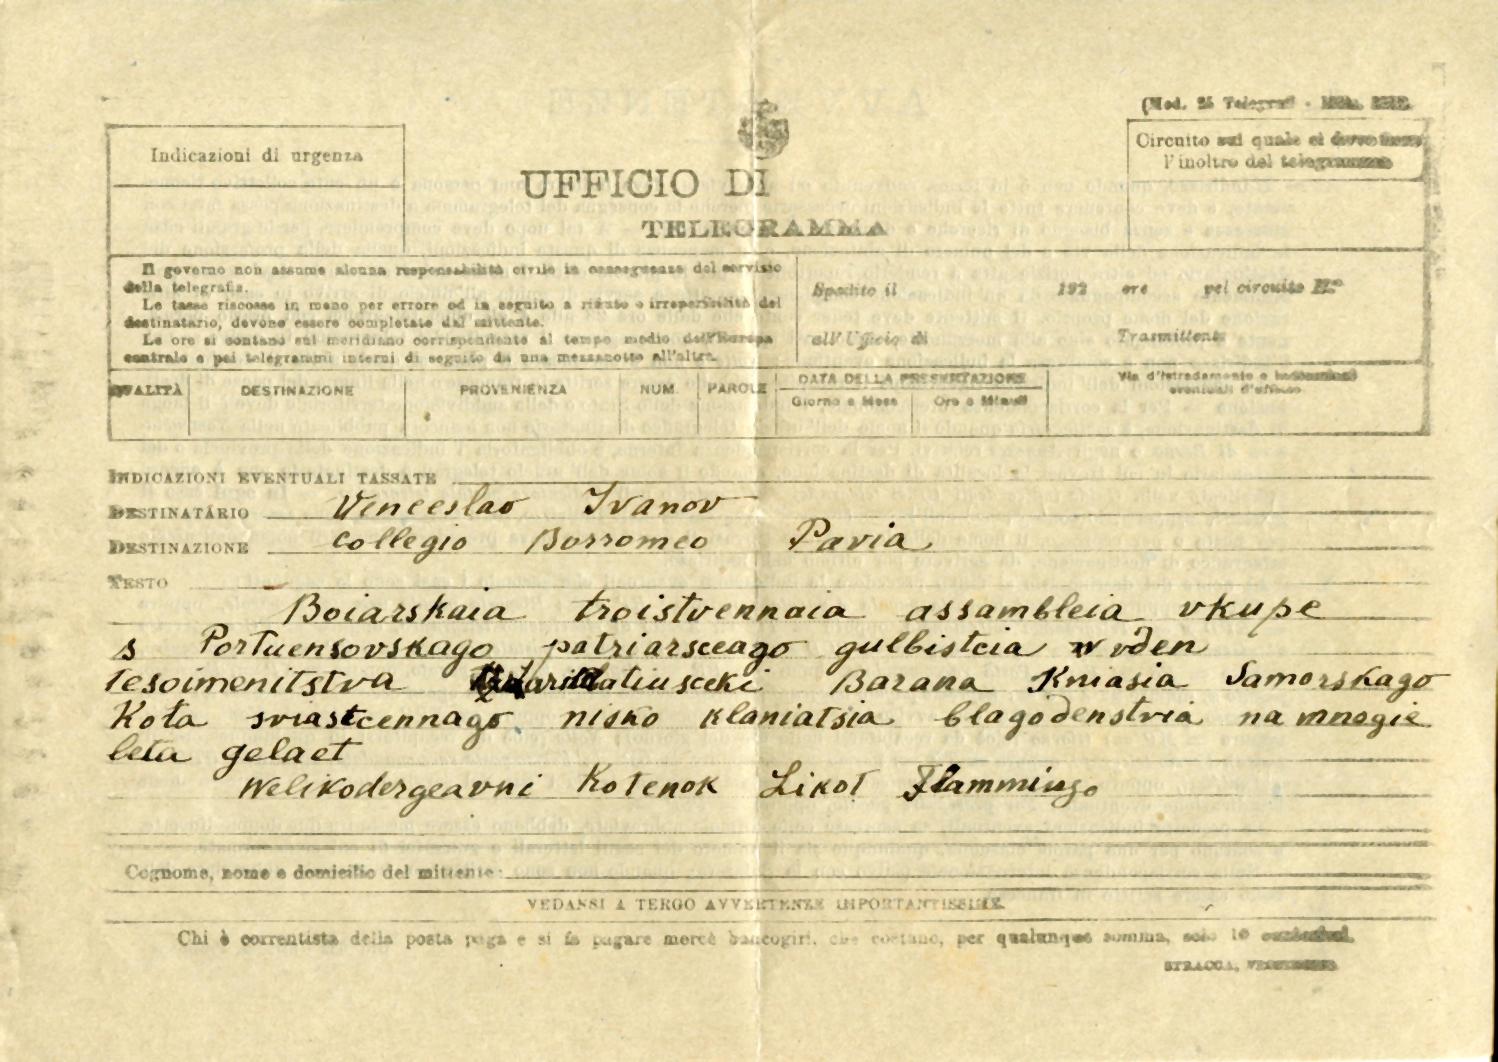 (Mod. 25 Telegrafi -
Indicazioni di urgenza
Circuito sul quale si deve fare
l'inoltro del telegramma
UFFICIO DI
TELEGRAMMA
Il governo non assume alcuna responsabilità civile in conseguenza del servizio
della telegrafia.
Le tasse riscosse in meno per errore od in seguito a rifiuto o irreperibilità del
destinatario, devono essere completate dal mittente.
Le ore si contano sul meridiano corrispondente al tempo medio dell'Europa
centrale e pei telegrammi interni di seguito da una mezzanotte all'altra.
Spedito il 192 ore pel circuito N.º
all'Ufficio di Trasmittente
QUALITÀ DESTINAZIONE PROVENIENZA NUM. PAROLE DATA DELLA PRESENTAZIONE Via d'istradamento e indicazioni
Giorno e Mese Ore e Minuti eventuali d'ufficio
INDICAZIONI EVENTUALI TASSATE
DESTINATARIO Venceslao Ivanov
DESTINAZIONE Collegio Borromeo Pavia
TESTO
Boiarskaia troistvennaia assambleia vkupe
s Portuensovskago patriarsceago gulbistcia v den
tesoimenitstva Barana Kniasia Samorskago
Kota sviastcennago nisko klaniatsia blagodenstvia na mnogie
leta gelaet
Welikodergeavni Kotenok Likot Flammingo
Cognome, nome e domicilio del mittente:
VEDANSI A TERGO AVVERTENZE IMPORTANTISSIME.
Chi è correntista della posta paga e si fa pagare mercè bancogiri, che costano, per qualunque somma, solo 10 centesimi.
STRACCA,